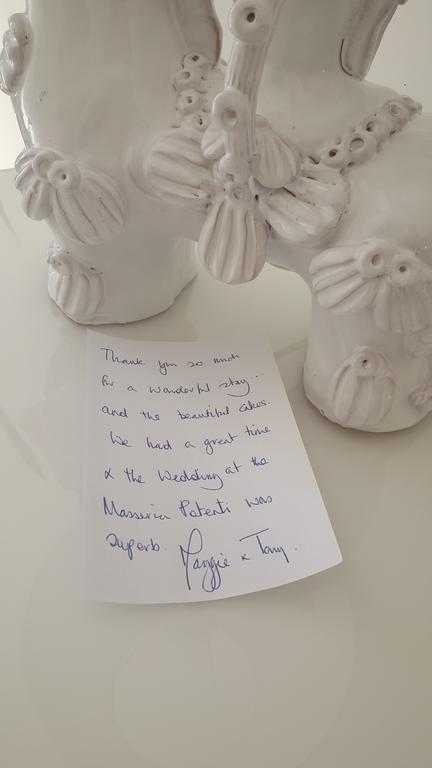 Thank you so much
for a wonderful stay...
and the beautiful cakes.
We had a great time
& the Wedding at the
Masseria Potenti was
superb. Maggie x Tony.